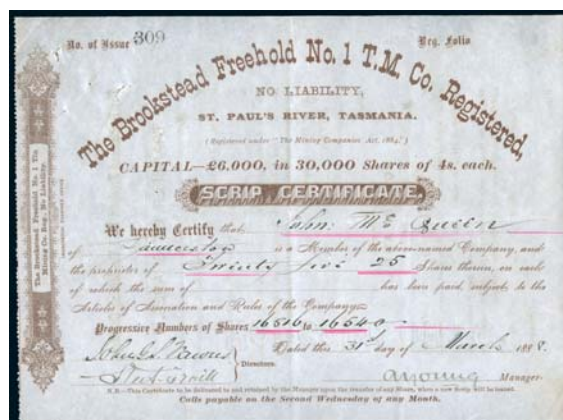 No. of Issue 309 Reg. Folio
The Brookstead Freehold No. 1 T.M. Co. Registered,
NO LIABILITY,
ST. PAUL'S RIVER, TASMANIA.
(Registered under "The Mining Companies Act, 1884.")
CAPITAL—£6,000, in 30,000 Shares of 4s. each.
SCRIP CERTIFICATE.
We hereby Certify that John Mc Queen
of Launceston is a Member of the above-named Company, and
the proprietor of Twenty five 25 Shares therein, on each
of which the sum of has been paid, subject to the
Articles of Association and Rules of the Company.
Progressive Numbers of Shares 16516 to 16540
Dated this 31st day of March 1888.
Directors.
A Young Manager.
N.B.—This Certificate to be delivered to and retained by the Manager upon the transfer of any Share, when a new Scrip will be issued.
Calls payable on the Second Wednesday of any Month.
The Brookstead Freehold No. 1 Tin
Mining Co. Reg., No Liability.